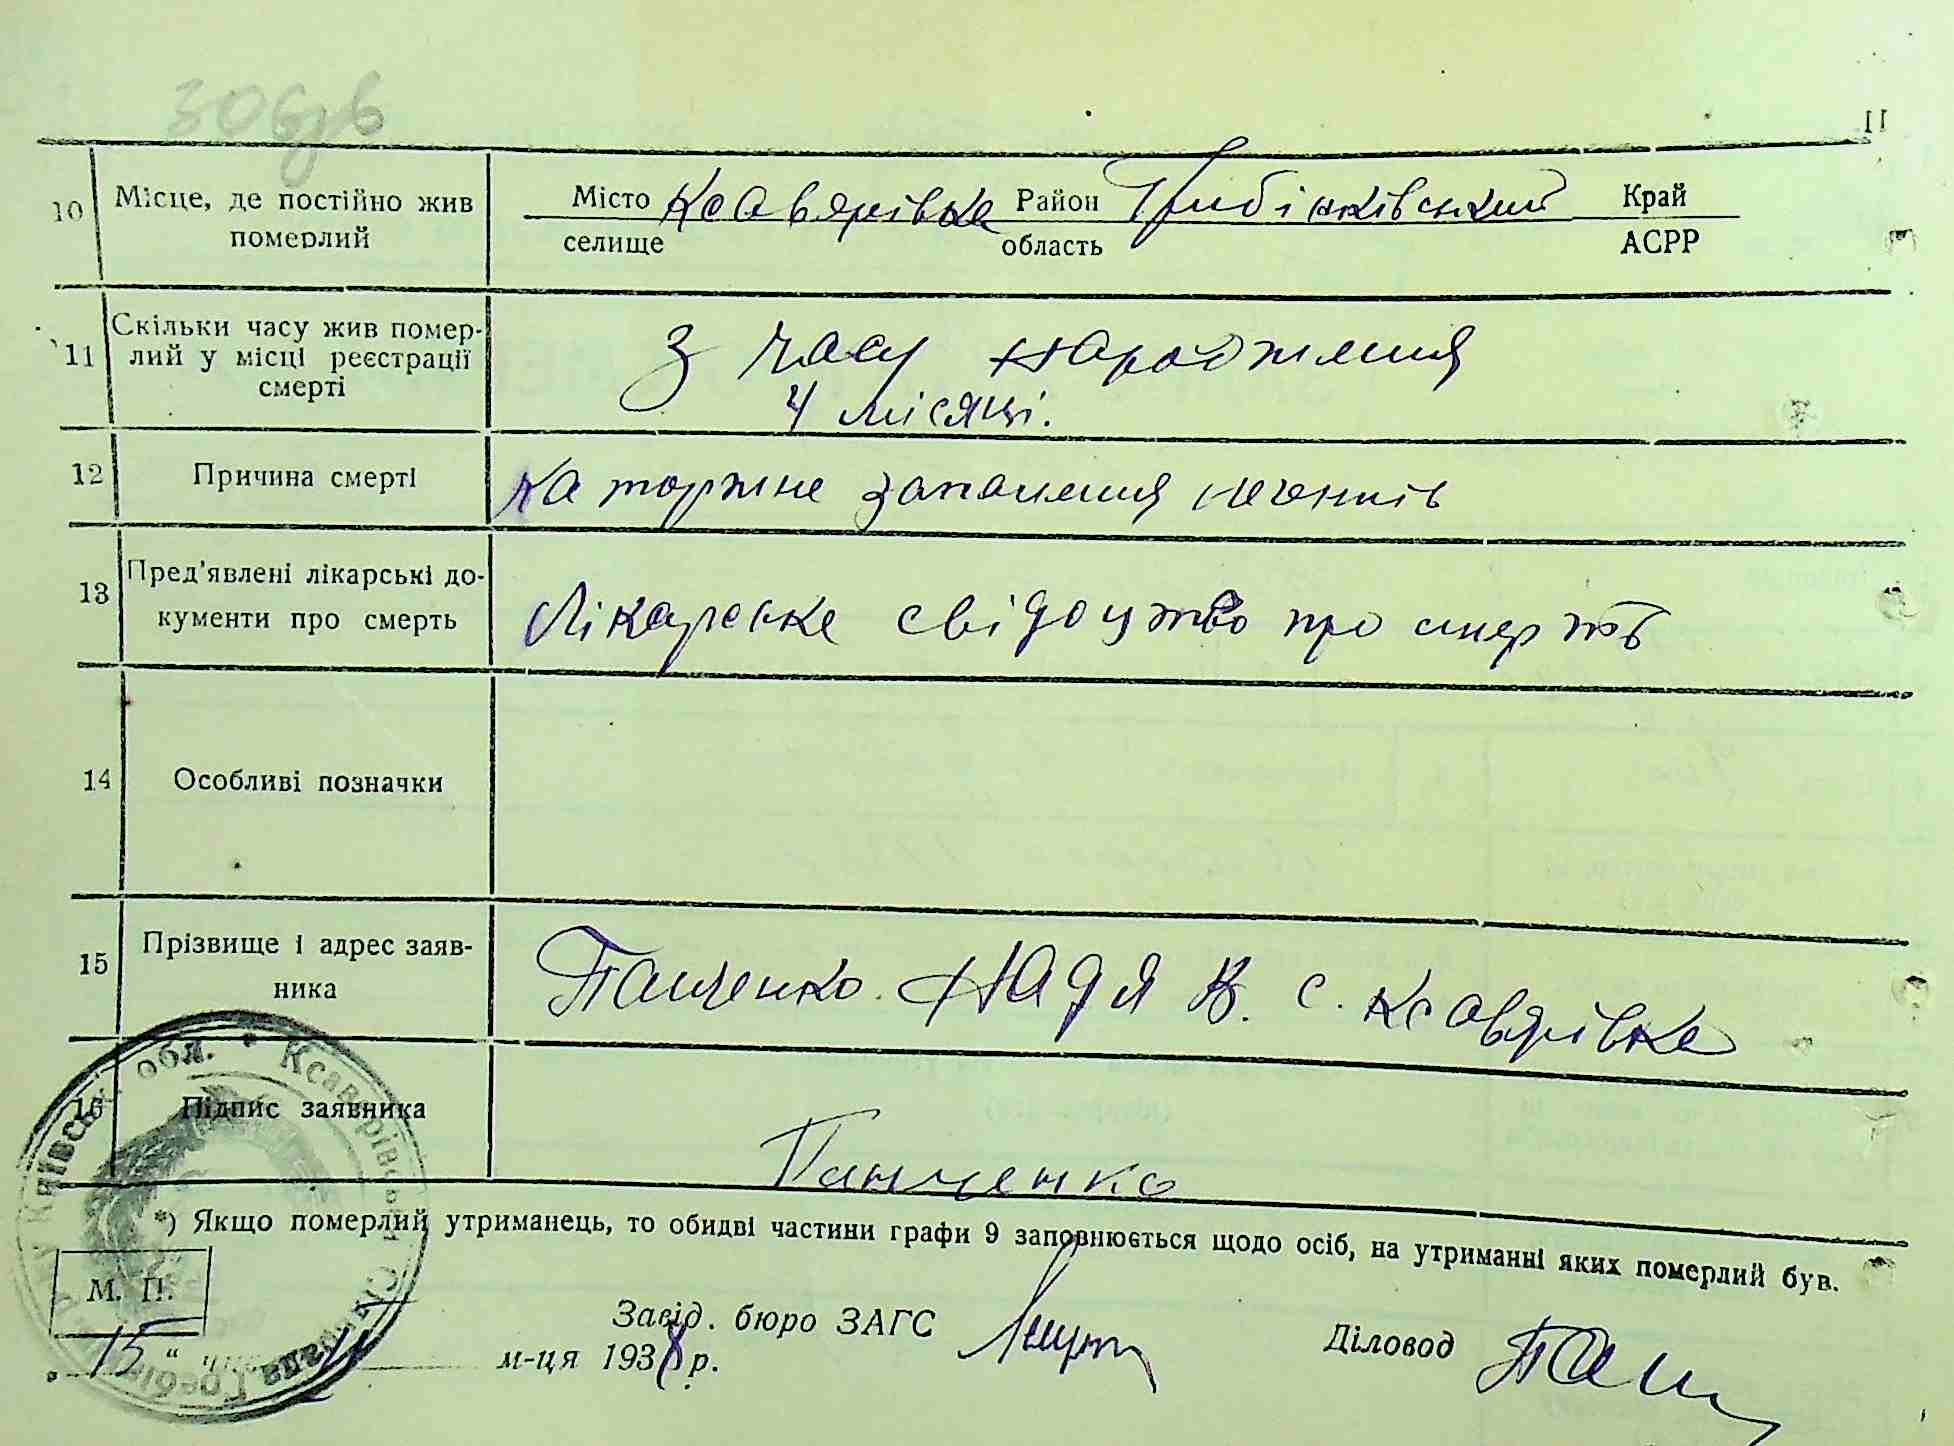 11
10 Місце, де постійно жив померлий
Місто Ксавярівка Район Грибінківський Край
селище область АСРР
11 Скільки часу жив помер-
лий у місці реєстрації
смерті
З часу народження
4 місяці.
12 Причина смерті
каторжне запалення легенків
13 Пред'явлені лікарські до-
кументи про смерть
Лікарське свідоцтво про смерть
14 Особливі позначки
15 Прізвище і адрес заяв-
ника
Панченко Надя В. с. Ксавярівка
16 Підпис заявника
Панченко
*) Якщо померлий утриманець, то обидві частини графи 9 заповнюється щодо осіб, на утриманні яких померлий був.
М. П.
Завід. бюро ЗАГС
Діловод
15 " м-ця 1938 р.
Київськ. обл. * Ксаврівськ Сільрада